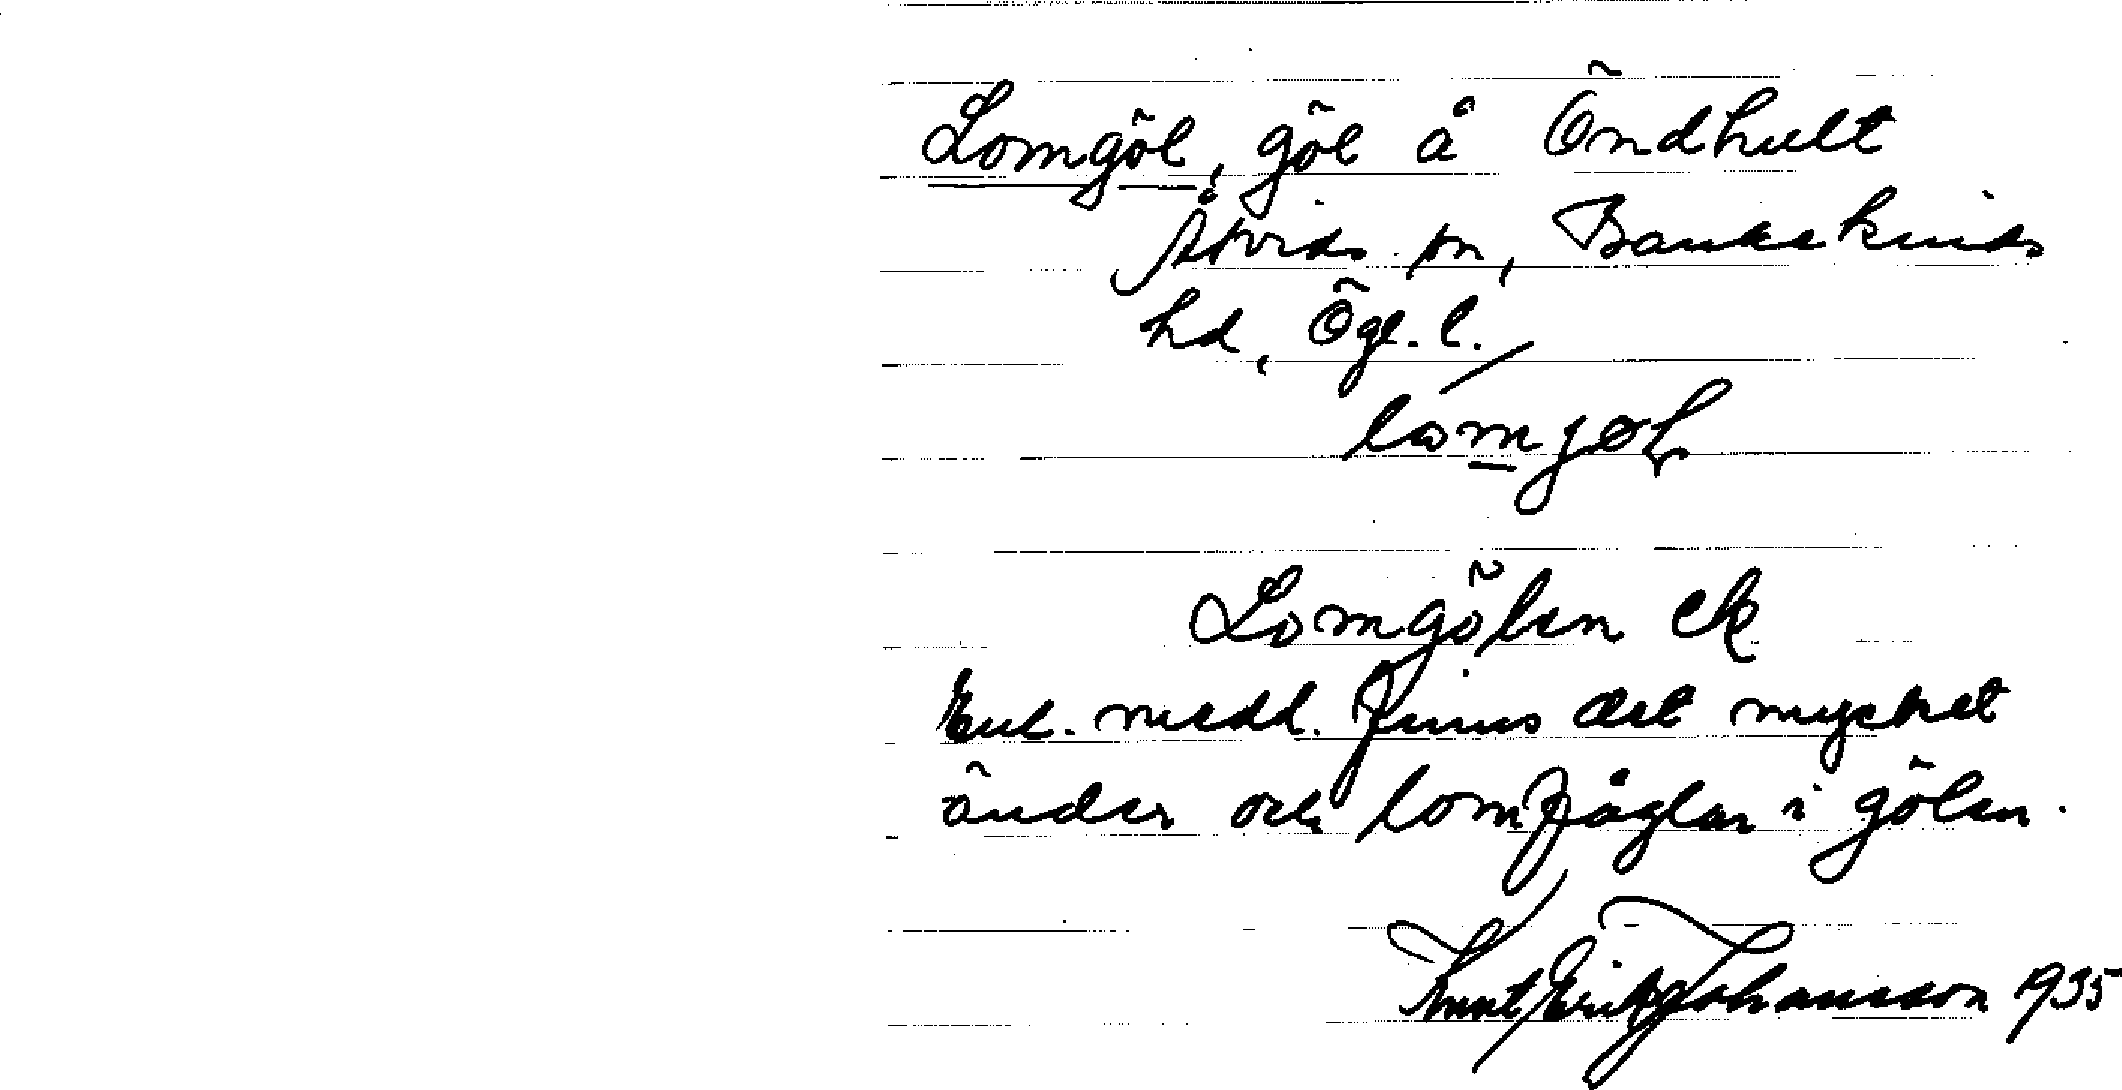 Lomgöl, göl å Öndhult
Åtvids sn, Bankekinds
hd, Ögl. l.
lomjøl
Lomgölen ek
Enl. medd. finns det mycket
änder och lomfåglar i gölen.
Knut Erik Johansson 1935